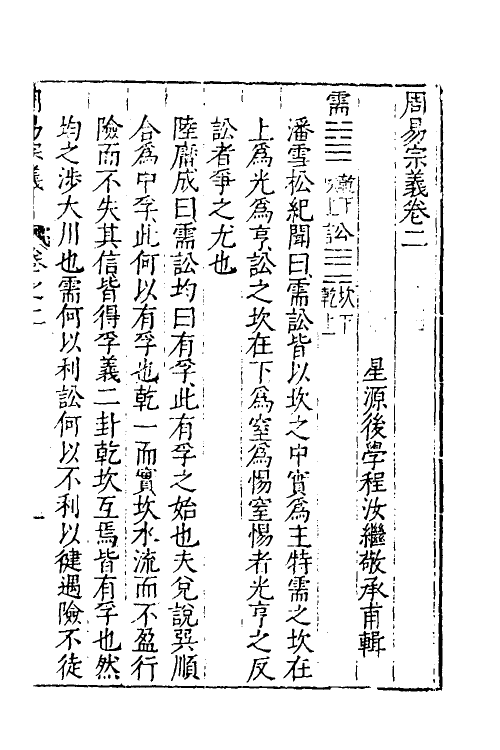 周易宗義卷二
星源後學程汝繼敬承甫輯
需䷄乾下坎上訟䷅坎下乾上
潘雪松紀聞曰需訟皆以坎之中實為主特需之坎在
上為光為亨訟之坎在下為窒為惕窒惕者光亨之反
訟者爭之尤也
陸庸成曰需訟均曰有孚此有孚之始也夫兌說巽順
合為中孚此何以有孚也乾一而實坎水流而不盈行
險而不失其信皆得孚義二卦乾坎互焉皆有孚也然
均之涉大川也需何以利訟何以不利以健遇險不徒
周易宗義 卷之二 一